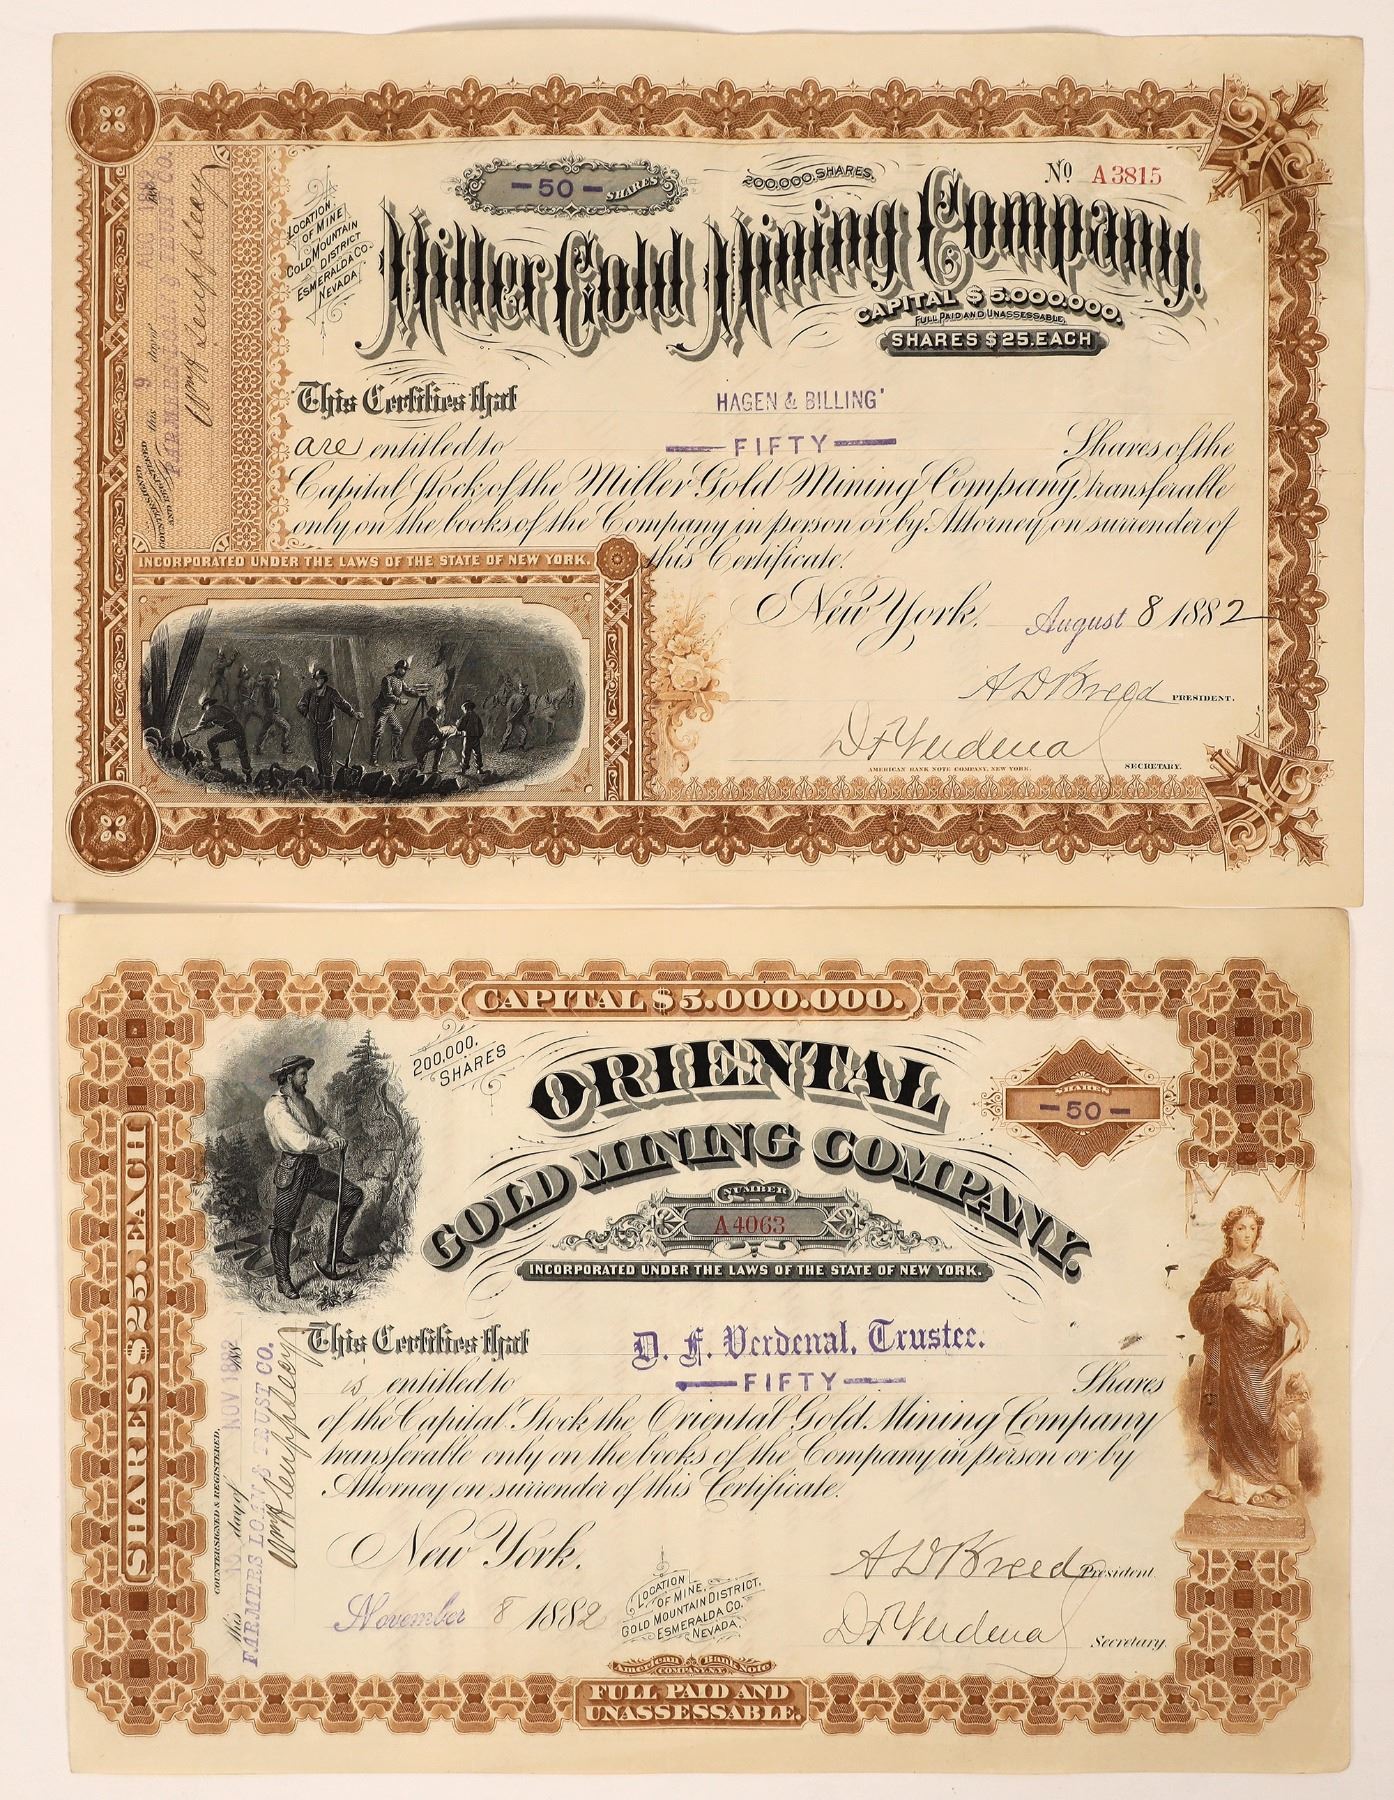 - 50 - SHARES
200,000,SHARES.
Nº A3815
LOCATION
OF MINE
GOLD MOUNTAIN
DISTRICT
ESMERALDA CO.
NEVADA
Miller Gold Mining Company.
CAPITAL $5.000.000.
FULL PAID AND UNASSESSABLE.
SHARES $25.EACH
This Certifies that HAGEN & BILLING'
are entitled to — FIFTY — Shares of the
Capital Stock of the Miller Gold Mining Company transferable
only on the books of the Company in person or by Attorney on surrender of
this Certificate.
New York, August 8 1882
A D Breed PRESIDENT.
D F Verdenal SECRETARY.
AMERICAN BANK NOTE COMPANY, NEW YORK.
COUNTERSIGNED
AND REGISTERED
this 9 day of AUG
FARMERS LOAN & TRUST CO.
INCORPORATED UNDER THE LAWS OF THE STATE OF NEW YORK.
CAPITAL $5.000.000.
200,000,
SHARES
ORIENTAL
GOLD MINING COMPANY.
SHARES
- 50 -
NUMBER
A4063
INCORPORATED UNDER THE LAWS OF THE STATE OF NEW YORK.
SHARES $25. EACH
This Certifies that D. F. Verdenal, Trustee.
is entitled to — FIFTY — Shares
of the Capital Stock the Oriental Gold Mining Company
transferable only on the books of the Company in person or by
Attorney on surrender of this Certificate.
New York,
November 8 1882
LOCATION
OF MINE,
GOLD MOUNTAIN DISTRICT,
ESMERALDA CO.
NEVADA.
A D Breed President
D F Verdenal Secretary.
COUNTERSIGNED & REGISTERED.
this day of NOV 1882
FARMERS LOAN & TRUST CO.
American Bank Note
COMPANY, N.Y.
FULL PAID AND
UNASSESSABLE.